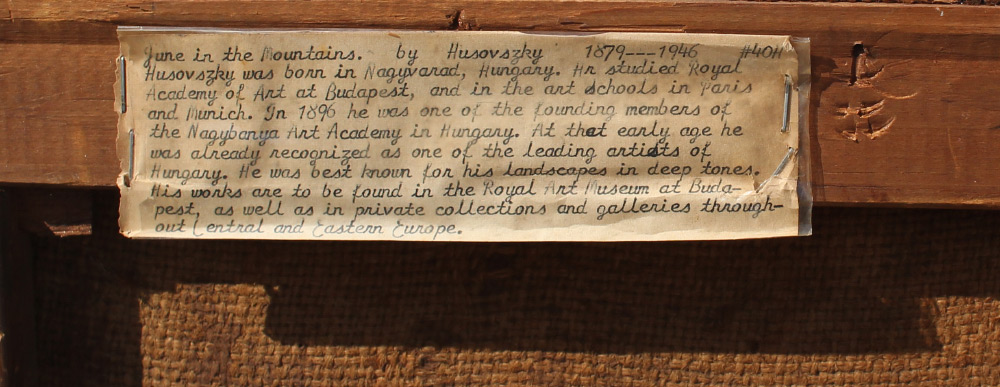 June in the Mountains. by Husovszky 1879---1946 #40H
Husovszky was born in Nagyvarad, Hungary. Hr studied Royal
Academy of Art at Budapest, and in the art schools in Paris
and Munich. In 1896 he was one of the founding members of
the Nagybanya Art Academy in Hungary. At that early age he
was already recognized as one of the leading artists of
Hungary. He was best known for his landscapes in deep tones.
His works are to be found in the Royal Art Museum at Buda-
pest, as well as in private collections and galleries through-
out Central and Eastern Europe.